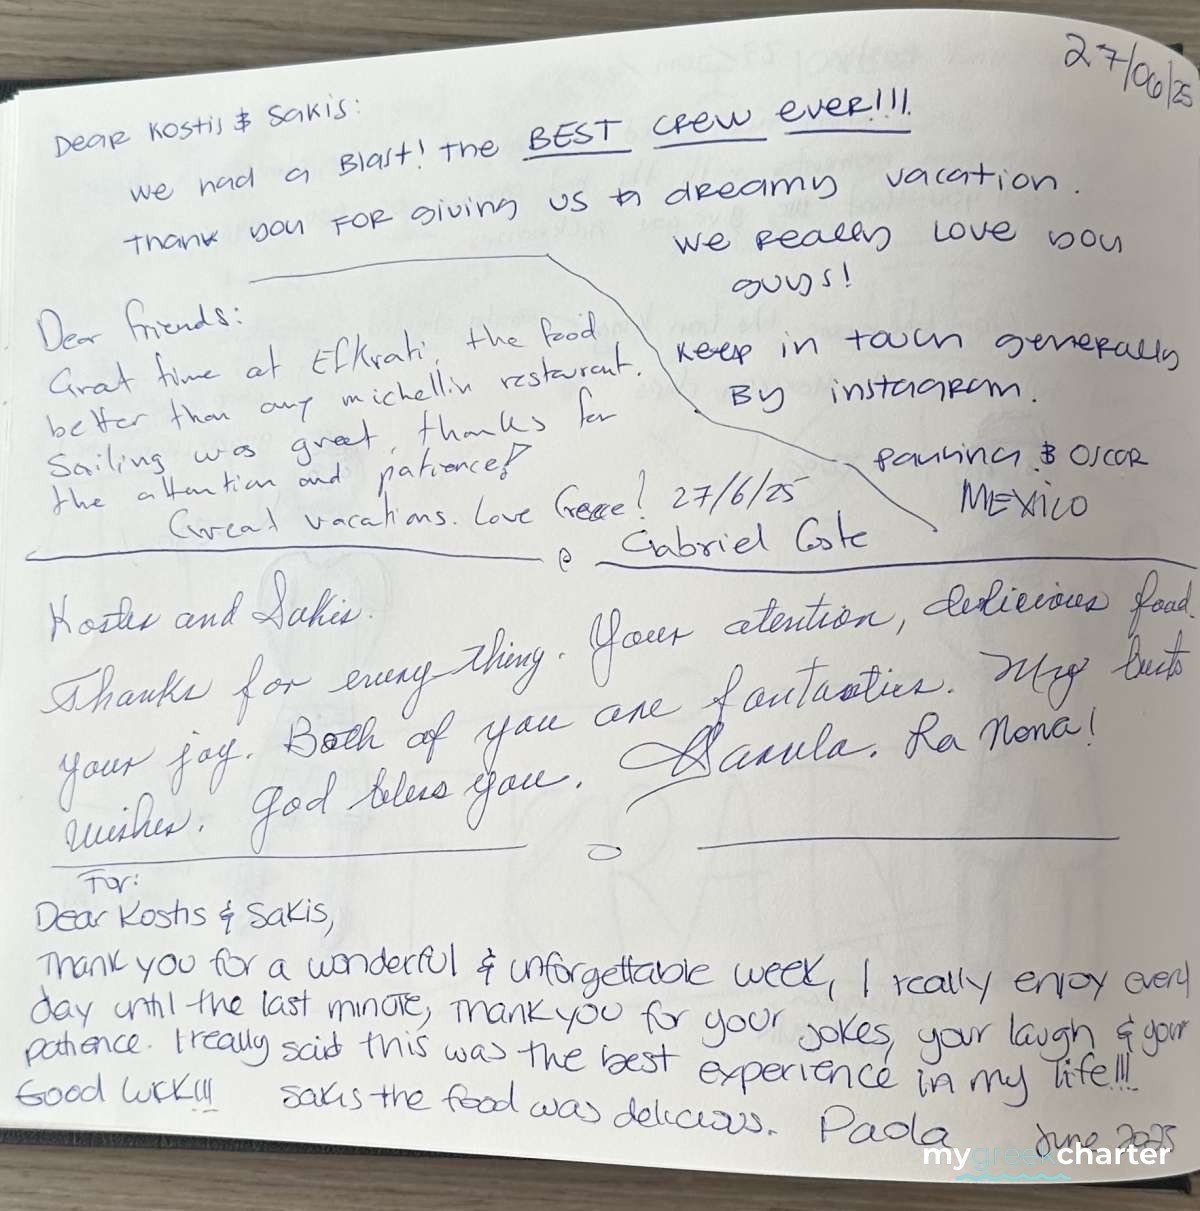 27/06/25
Dear Kostis & Sakis:
we had a Blast! the BEST crew ever!!!
Thank you for giving us a dreamy vacation.
we really love you
guys!
Keep in touch generally
By instagram.
Paulina & Oscar
MEXICO
Dear friends:
Great time at Efkrati, the food
better than any michellin restaurant.
Sailing was great, thanks for
the attention and patience!
Great vacations. Love Greece! 27/6/25
Gabriel Coste
Kostis and Sakis.
Thanks for every thing. Your atention, delicious food.
your joy. Both of you are fantastics. My bests
wishes. God bless you. La Nona!
For:
Dear Kostis & Sakis,
Thank you for a wonderful & unforgettable week, I really enjoy every
day until the last minute, Thank you for your jokes, your laugh & your
patience. I really said this was the best experience in my life!!!
Good luck!!! Sakis the food was delicious. Paola June 2025
mygreekcharter